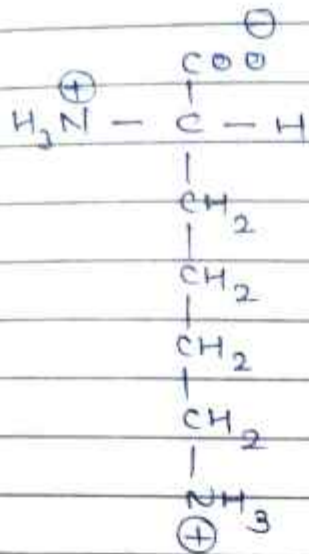 ⊖
COO
⊕
H3N — C — H
CH2
CH2
CH2
CH2
NH3
⊕